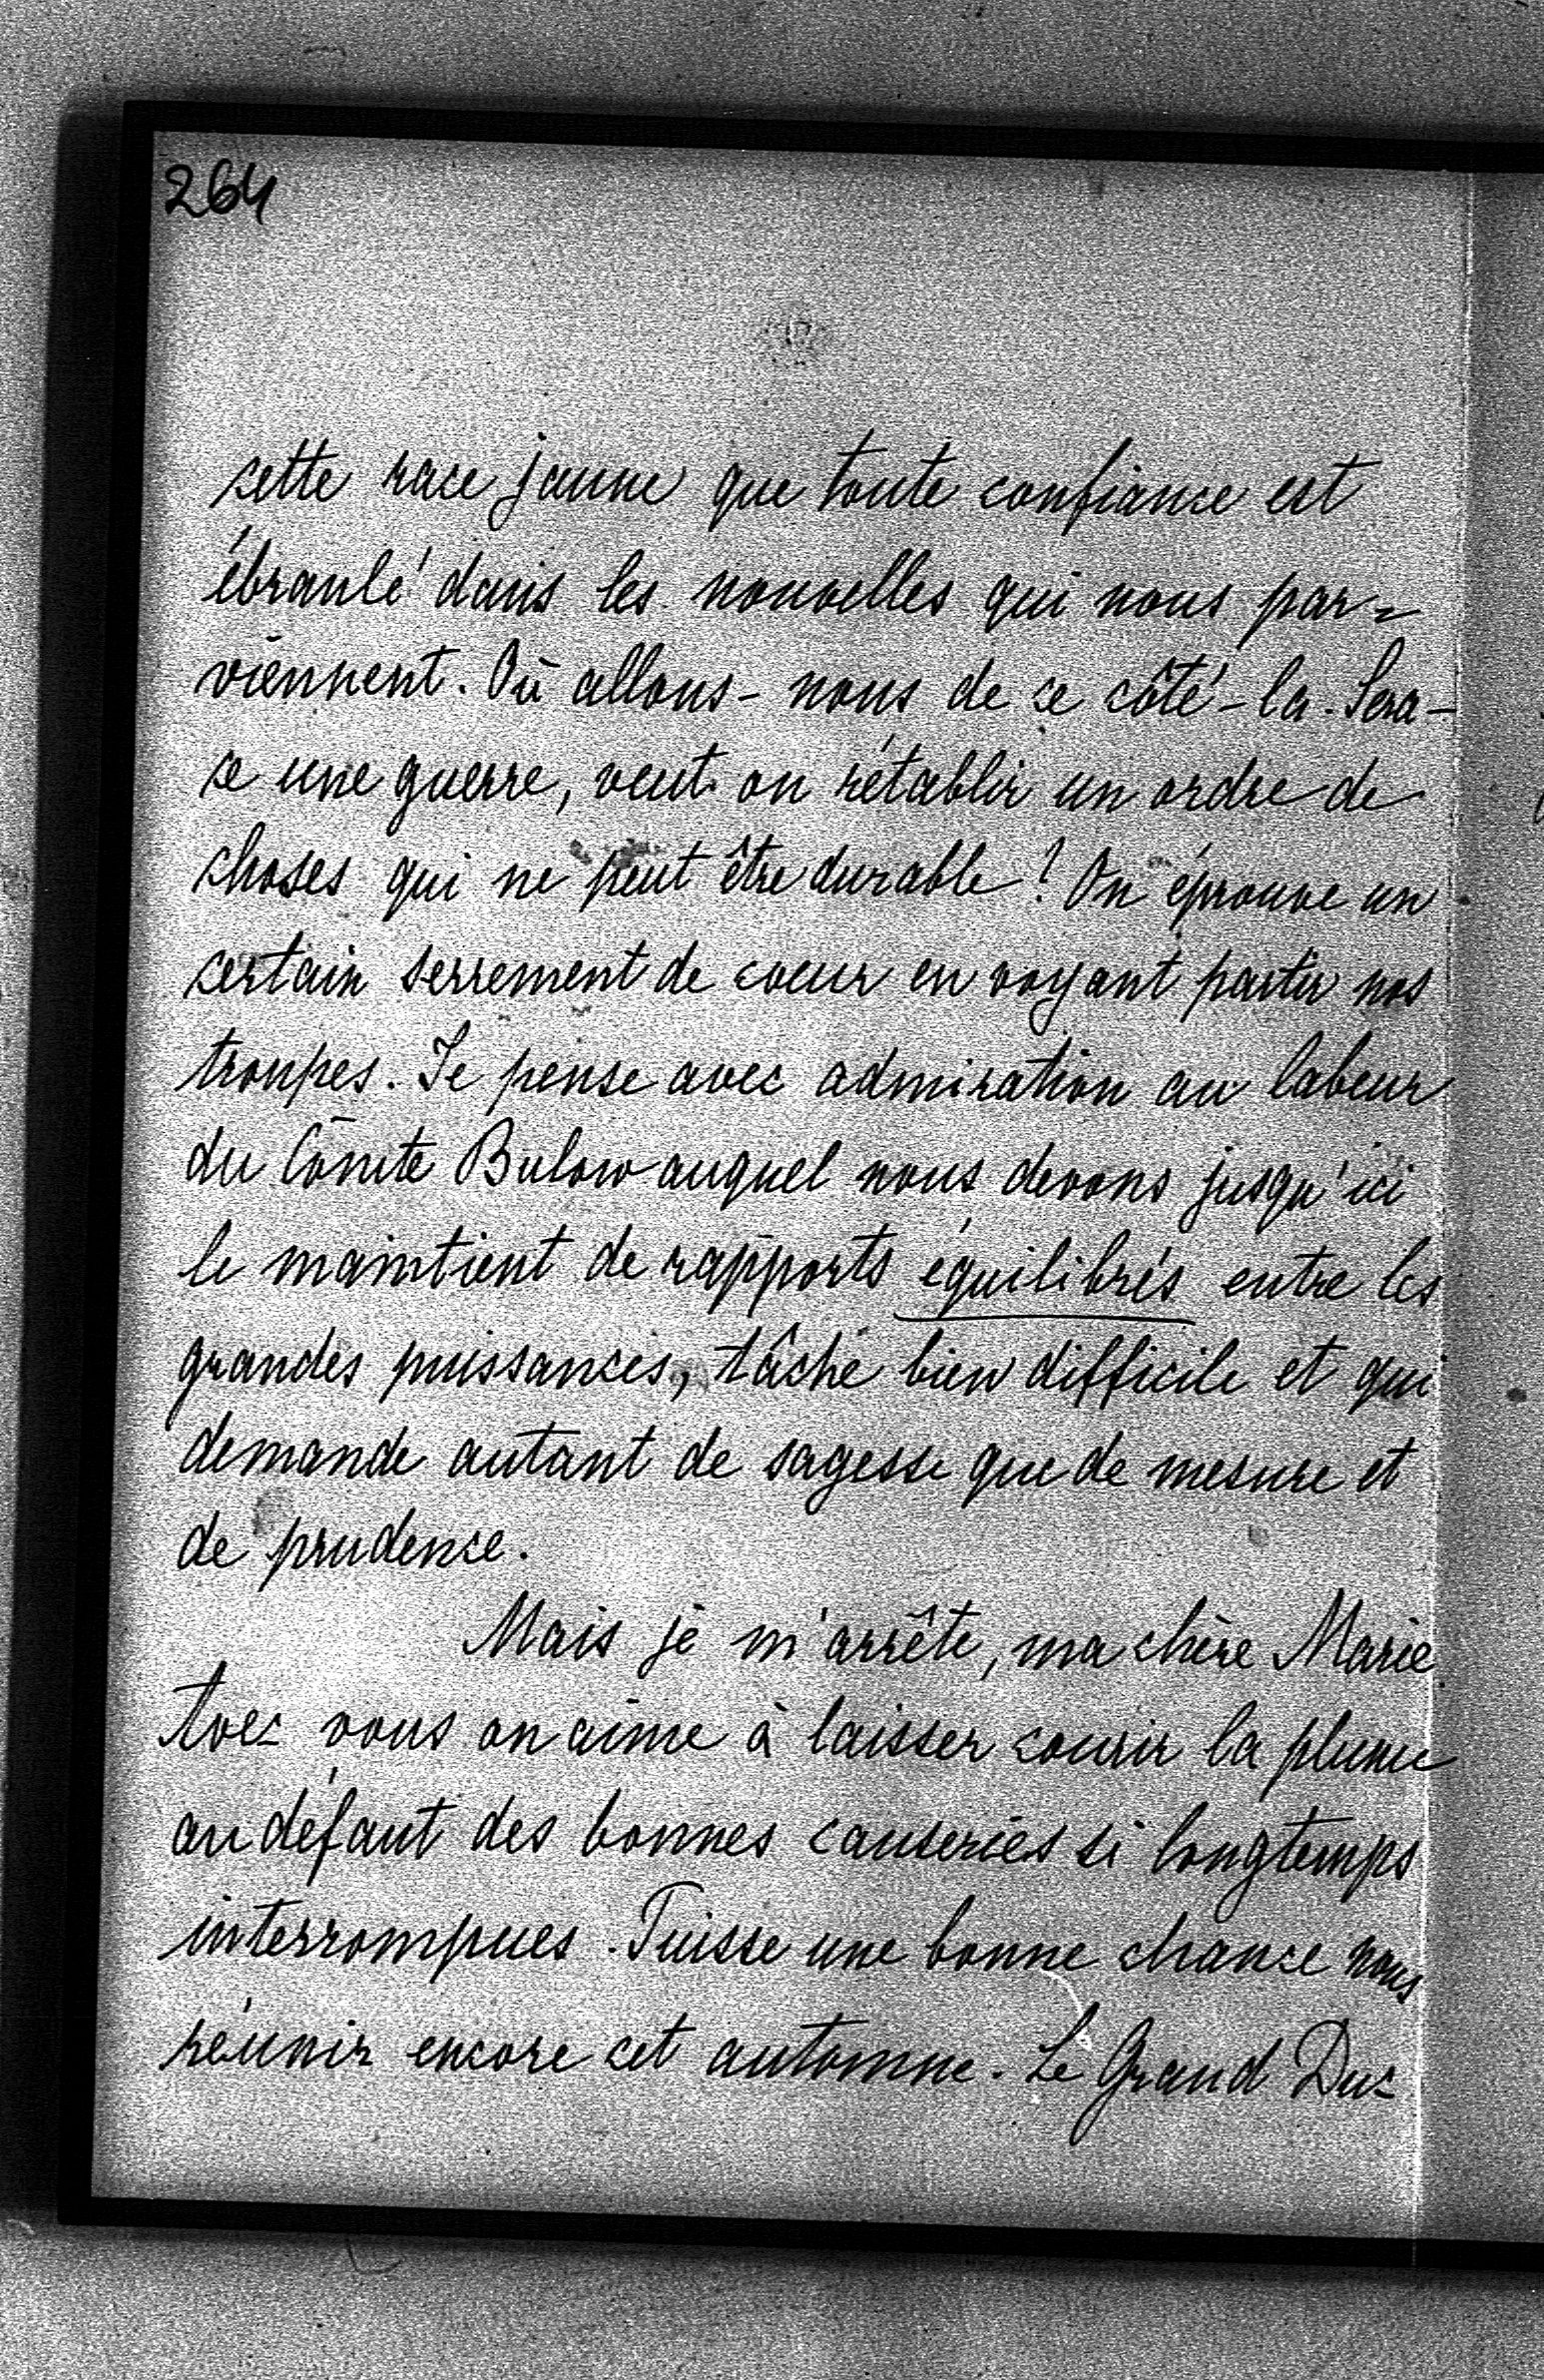 264
cette race jaune que toute confiance est
ébranlé dans les nouvelles qui nous par=
viennent. Où allons-nous de ce côté-la. Sera-
ce une guerre, veut on rétablir un ordre de
choses qui ne peut être durable? On éprouve un
certain serrement de coeur en voyant partir nos
troupes. Je pense avec admiration au labeur
du Comte Bulow auquel nous devons jusqu'ici
le maintient de rapports équilibrés entre les
grandes puissances, tâche bien difficile et qui
demande autant de sagesse que de mesure et
de prudence.
Mais je m'arrête, ma chère Marie
Avec vous on aime à laisser courir la plume
au défaut des bonnes causeries si longtemps
interrompues. Puisse une bonne chance nous
réunir encore cet automne. Le Grand Duc